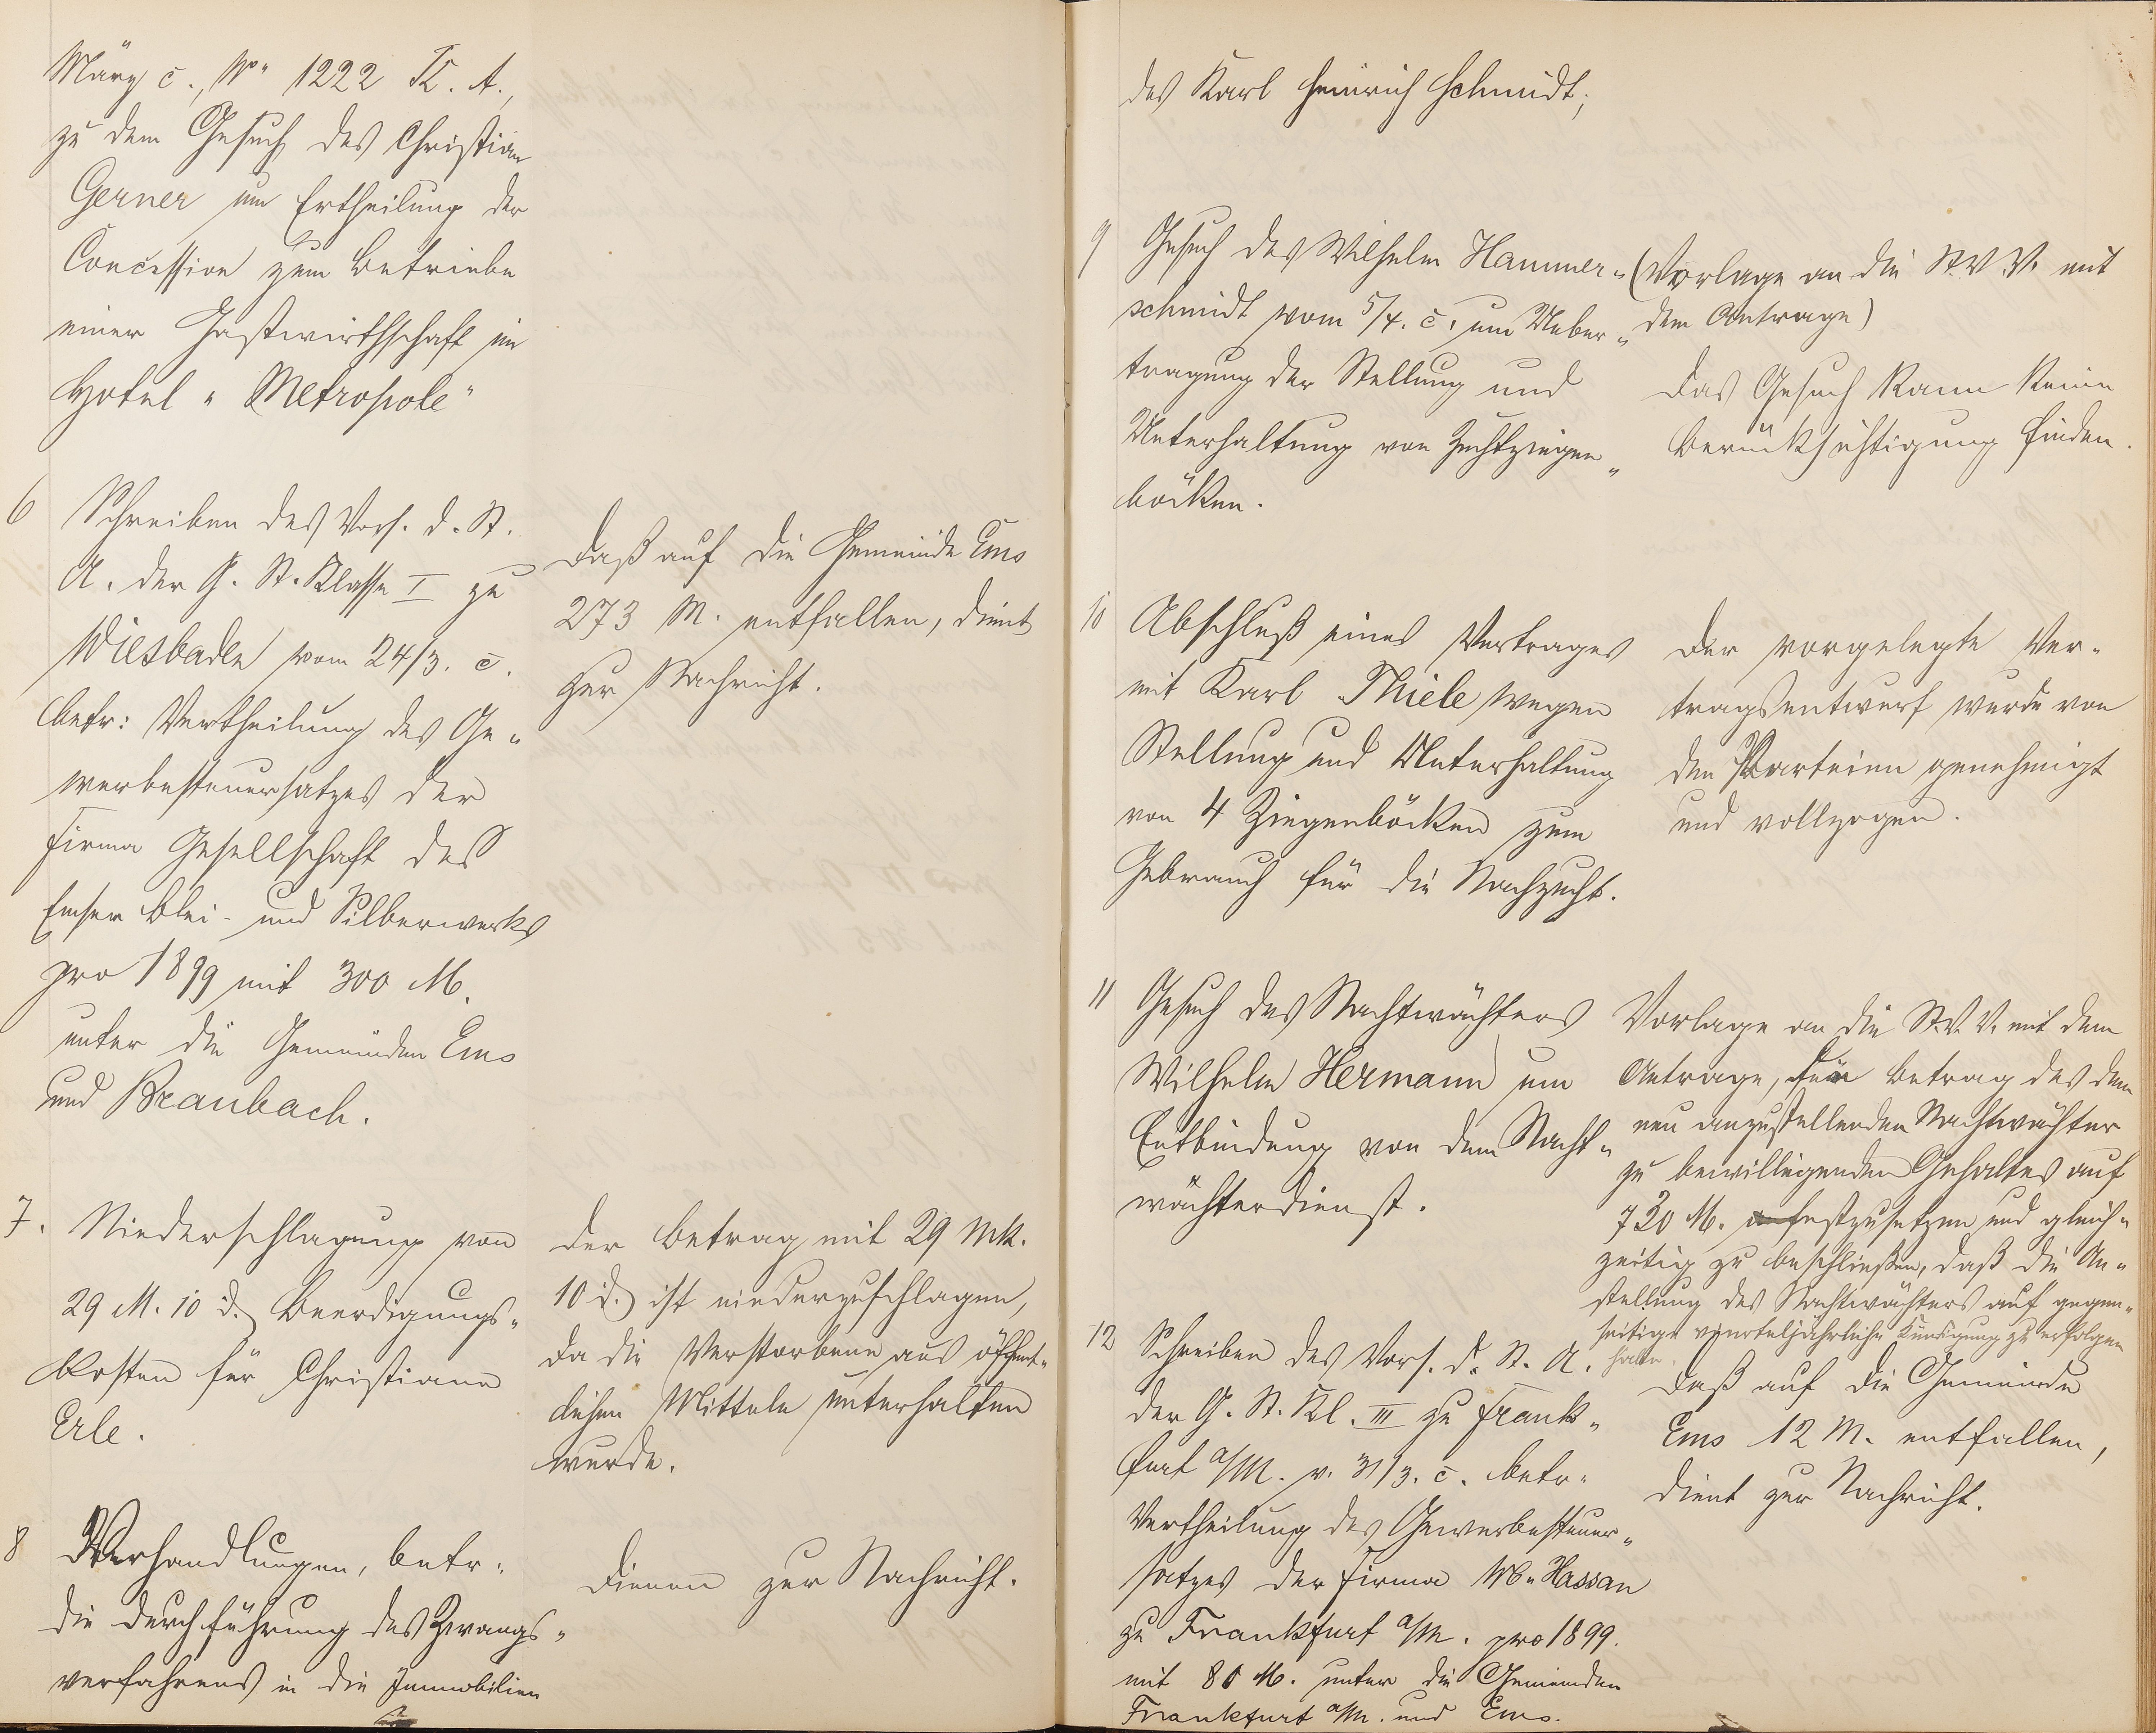 März c., No 1222 K. A.,
zu dem Gesuch des Christian
Gerner um Ertheilung der
Concession zum Betriebe
einer Gastwirthschaft im
Hotel "Metropole"
6 Schreiben des Vors. d. St.
A. der G. St. Klasse I zu
Wiesbaden vom 24/3. c.
betr: Vertheilung des Ge-
werbesteuersatzes der
Firma Gesellschaft des
Emser Blei- und Silberwerks
pro 1899 mit 300 M.
unter die Gemeinden Ems
und Braubach.
Daß auf die Gemeinde Ems
273 M. entfallen, dient
zur Nachricht.
7. Niederschlagung von
29 M. 10 d. Beerdigungs-
kosten für Christiane
Erle.
Der Betrag mit 29 Mk.
10 d. ist niederzuschlagen,
da die Verstorbene aus öffent-
lichen Mitteln unterhalten
wurde.
8 Verhandlungen, betr.
die Durchführung des Zwangs-
verfahrens in die Immobilien
Dienen zur Nachricht.
des Karl Heinrich Schmidt;
9 Gesuch des Wilhelm Hammer-
schmidt vom 5/4. c. um Ueber-
tragung der Stellung und
Unterhaltung von Zuchtziegen-
böcken.
(Vorlage an die St. V. V. mit
dem Antrage)
Das Gesuch kann keine
Berücksichtigung finden.
10 Abschluß eines Vertrages
mit Karl Thiele wegen
Stellung und Unterhaltung
von 4 Ziegenböcken zum
Gebrauch für die Nachzucht.
Der vorgelegte Ver-
tragsentwurf wurde von
den Parteien genehmigt
und vollzogen.
11 Gesuch des Nachtwächters
Wilhelm Hermann um
Entbindung von dem Nacht-
wächterdienst.
Vorlage an die St. V. V. mit dem
Antrage, den Betrag des dem
neu anzustellenden Nachtwächter
zu bewilligenden Gehaltes auf
720 M. festzusetzen und gleich-
zeitig zu beschließen, daß die An-
stellung des Nachtwächters auf gegen-
seitige vierteljährliche Kündigung zu erfolgen
habe.
12 Schreiben des Vors. d. St. A.
der G. St. Kl. III zu Frank-
furt a/M. v. 31/3. c. betr.
Vertheilung des Gewerbesteuer-
satzes der Firma M. Hassan
zu Frankfurt a/M. pro 1899.
mit 80 M. unter die Gemeinden
Frankfurt a/M. und Ems.
Daß auf die Gemeinde
Ems 12 M. entfallen,
dient zur Nachricht.